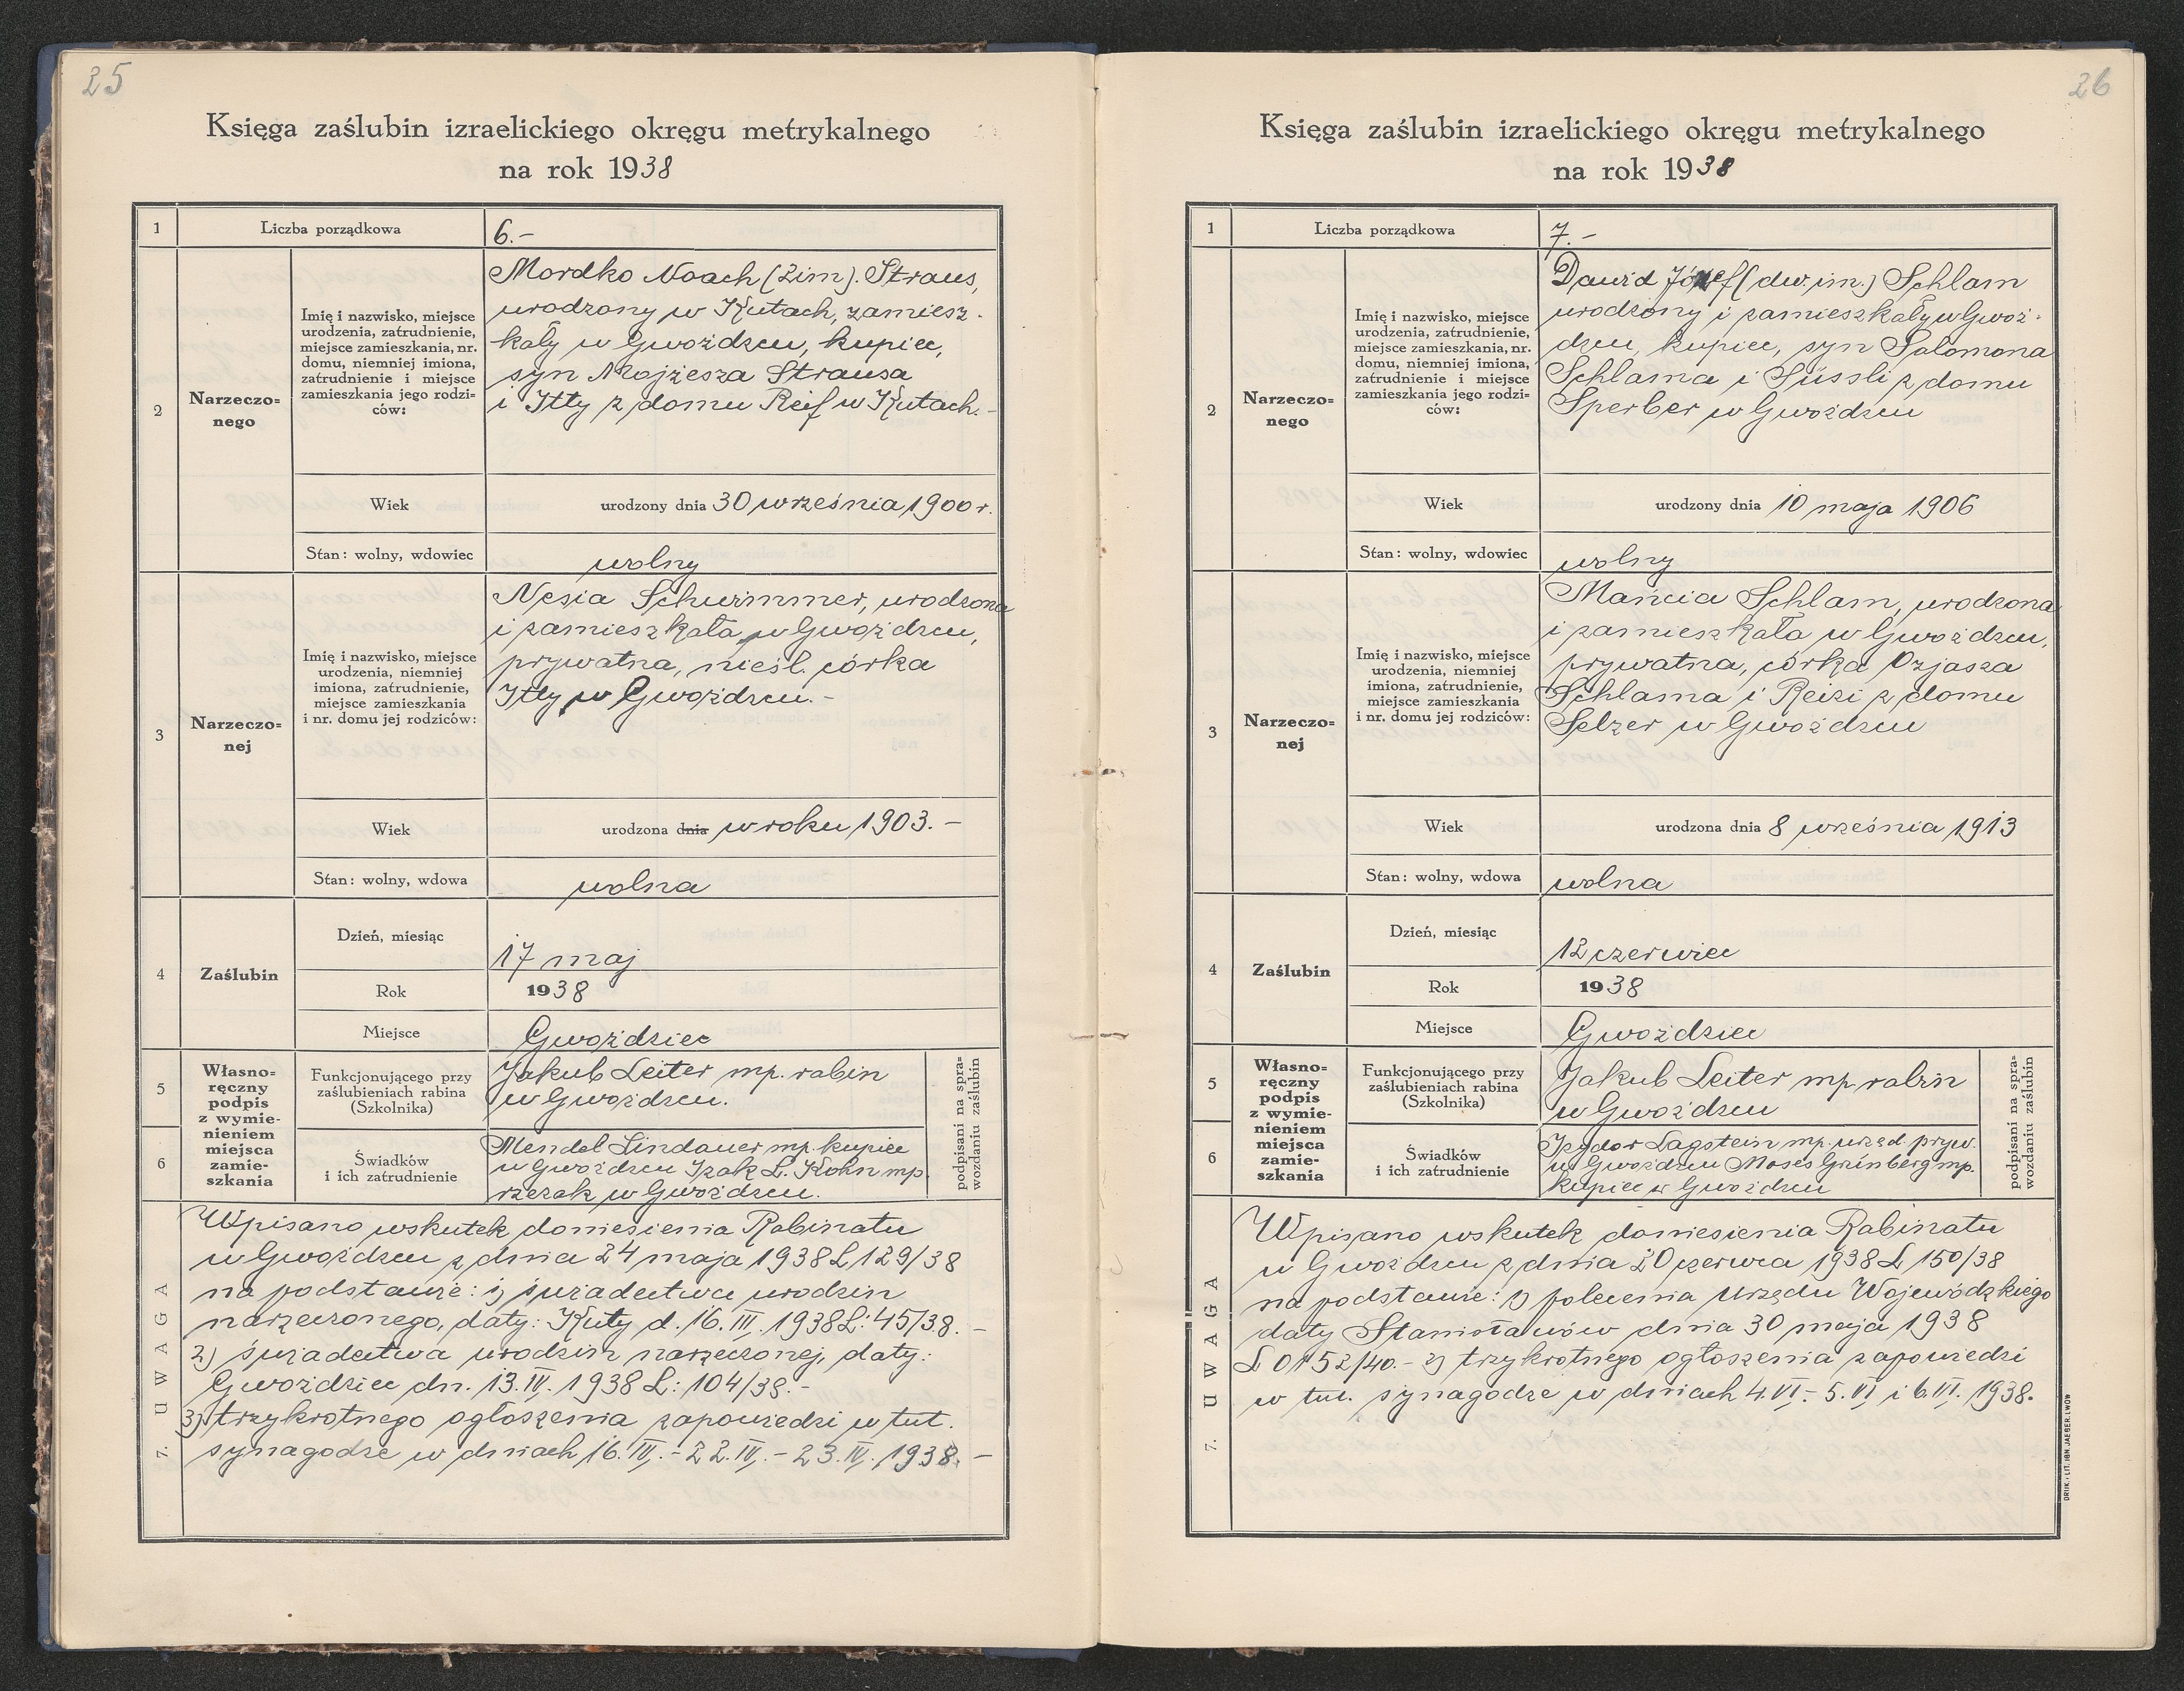 25
Księga zaślubin izraelickiego okręgu metrykalnego
na rok 1938
1
Liczba porządkowa
6.-
2
Narzeczo=
nego
Imię i nazwisko, miejsce
urodzenia, zatrudnienie,
miejsce zamieszkania, nr.
domu, niemniej imiona,
zatrudnienie i miejsce
zamieszkania jego rodzi-
ców:
Mordko Noach (2im). Straus,
urodzony w Kutach, zamiesz-
kały w Gwoźdzcu, kupiec,
syn Mojżesza Strausa
i Itty z domu Reif w Kutach.-
Wiek
urodzony dnia 30 września 1900 r.
Stan: wolny, wdowiec
wolny
3
Narzeczo=
nej
Imię i nazwisko, miejsce
urodzenia, niemniej
imiona, zatrudnienie,
miejsce zamieszkania
i nr. domu jej rodziców:
Nesia Schwimmer, urodzona
i zamieszkała w Gwoźdzcu,
prywatna, nieśl. córka
Itty w Gwoźdzcu.-
Wiek
urodzona dnia w roku 1903.-
Stan: wolny, wdowa
wolna
4
Zaślubin
Dzień, miesiąc
17 maj
Rok
1938
Miejsce
Gwoździec
5
6
Własno=
ręczny
podpis
z wymie-
nieniem
miejsca
zamie-
szkania
Funkcjonującego przy
zaślubieniach rabina
(Szkolnika)
Jakub Leiter mp. rabin
w Gwoźdzcu.
Świadków
i ich zatrudnienie
Mendel Lindauer mp. kupiec
w Gwoźdzcu Izak L. Kohn mp.
rzezak w Gwoźdzcu.
podpisani na spra=
wozdaniu zaślubin
7. UWAGA
Wpisano wskutek doniesienia Rabinatu
w Gwoźdzcu z dnia 24 maja 1938 L 129/38
na podstawie: 1) świadectwa urodzin
narzeczonego, daty: Kuty d. 16. III. 1938 L: 45/38.-
2) świadectwa urodzin narzeczonej, daty:
Gwoździec dn. 13. IV. 1938 L: 104/38.-
3) trzykrotnego ogłoszenia zapowiedzi w tut.
synagodze w dniach 16. IV.- 22. IV.- 23. IV. 1938.-
26
Księga zaślubin izraelickiego okręgu metrykalnego
na rok 1938
1
Liczba porządkowa
7.-
2
Narzeczo=
nego
Imię i nazwisko, miejsce
urodzenia, zatrudnienie,
miejsce zamieszkania, nr.
domu, niemniej imiona,
zatrudnienie i miejsce
zamieszkania jego rodzi-
ców:
Dawid Józef (dw. im.) Schlam
urodzony i zamieszkały w Gwoź-
dzcu, kupiec, syn Salomona
Schlama i Süssli z domu
Sperber w Gwoźdzcu
Wiek
urodzony dnia 10 maja 1906
Stan: wolny, wdowiec
wolny
3
Narzeczo=
nej
Imię i nazwisko, miejsce
urodzenia, niemniej
imiona, zatrudnienie,
miejsce zamieszkania
i nr. domu jej rodziców:
Mańcia Schlam, urodzona
i zamieszkała w Gwoźdzcu,
prywatna, córka Ozjasza
Schlama i Reizi z domu
Selzer w Gwoźdzcu
Wiek
urodzona dnia 8 września 1913
Stan: wolny, wdowa
wolna
4
Zaślubin
Dzień, miesiąc
12 czerwiec
Rok
1938
Miejsce
Gwoździec
5
6
Własno=
ręczny
podpis
z wymie-
nieniem
miejsca
zamie-
szkania
Funkcjonującego przy
zaślubieniach rabina
(Szkolnika)
Jakub Leiter mp. rabin
w Gwoźdzcu
Świadków
i ich zatrudnienie
Izydor Lagstein mp. urzęd. pryw.
w Gwoźdzcu Moses Grünberg mp.
kupiec w Gwoźdzcu
podpisani na spra=
wozdaniu zaślubin
7. UWAGA
Wpisano wskutek doniesienia Rabinatu
w Gwoźdzcu z dnia 20 czerwca 1938 L 150/38
na podstawie: 1) polecenia Urzędu Wojewódzkiego
daty Stanisławów dnia 30 maja 1938
L 52/40.- 2) trzykrotnego ogłoszenia zapowiedzi
w tut. synagodze w dniach 4. VI.- 5. VI i 6. VI. 1938.
DRUK. I LIT. IGN. JAEGER, LWÓW